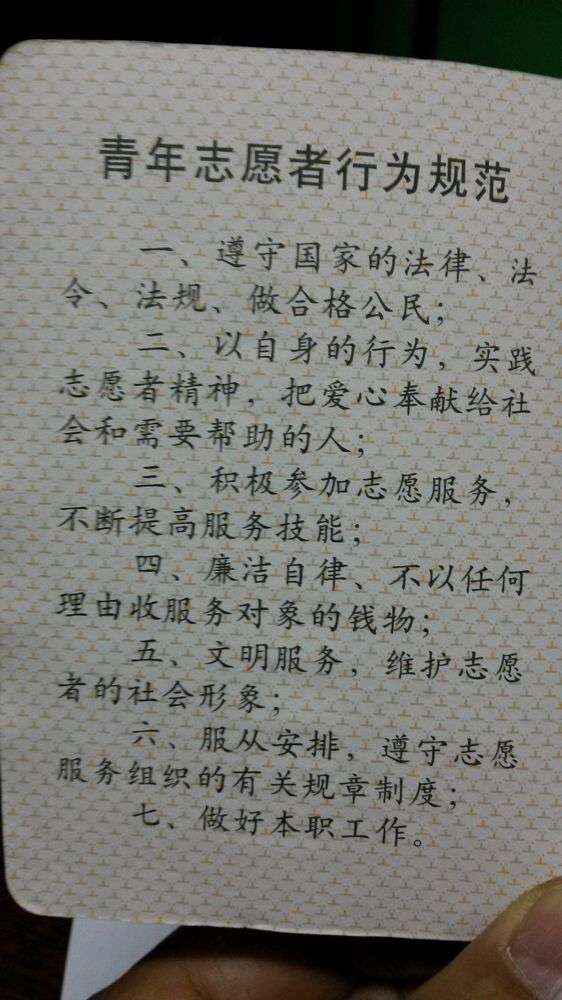 青年志愿者行为规范
一、遵守国家的法律、法
令、法规、做合格公民；
二、以自身的行为，实践
志愿者精神，把爱心奉献给社
会和需要帮助的人；
三、积极参加志愿服务，
不断提高服务技能；
四、廉洁自律、不以任何
理由收服务对象的钱物；
五、文明服务，维护志愿
者的社会形象；
六、服从安排，遵守志愿
服务组织的有关规章制度；
七、做好本职工作。